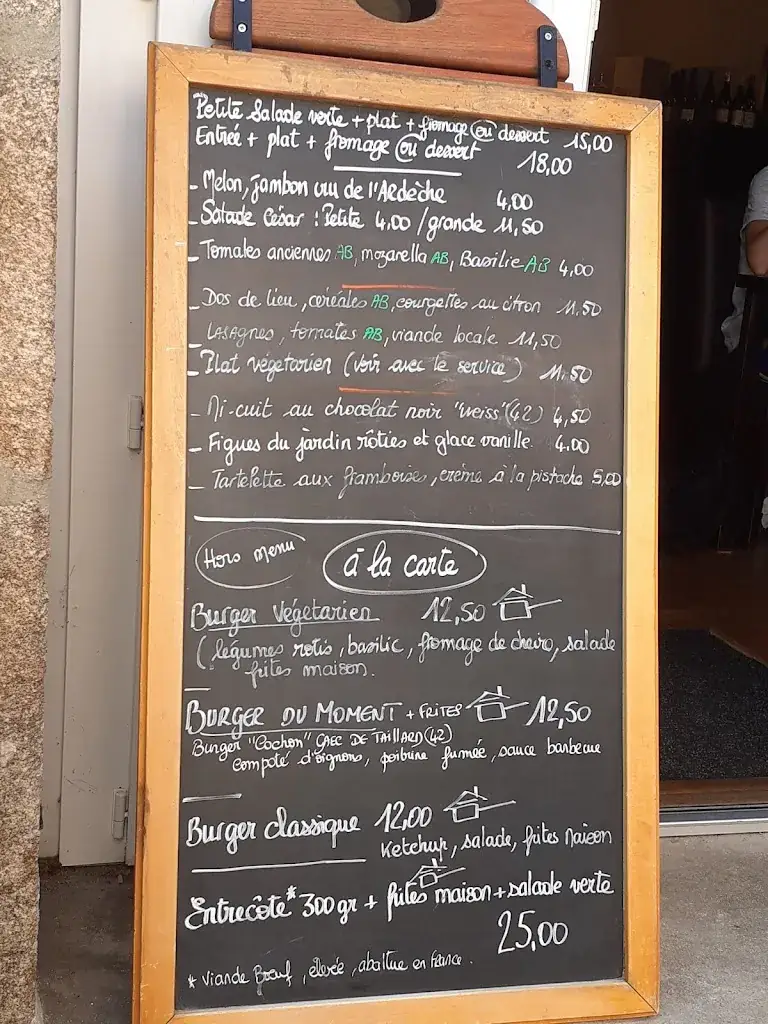 Petite Salade verte + plat + fromage ou dessert 15,00
Entrée + plat + fromage ou dessert 18,00
- Melon, jambon cru de l'Ardèche 4,00
- Salade César : Petite 4,00 / grande 11,50
- Tomates anciennes AB, mozarella AB, Basilic AB 4,00
- Dos de lieu, céréales AB, courgettes au citron 11,50
- LASAGNES, tomates AB, viande locale 11,50
- Plat végétarien (voir avec le service) 11,50
- Mi-cuit au chocolat noir "weiss" (42) 4,50
- Figues du jardin rôties et glace vanille 4,00
- Tartelette aux framboises, crème à la pistache 5,00
Hors menu
à la carte
Burger végétarien 12,50
(légumes rotis, basilic, fromage de chèvre, salade
frites maison.
BURGER DU MOMENT + FRITES 12,50
Burger "Cochon" GAEC DE TAILLARD (42)
compoté d'oignons, poitrine fumée, sauce barbecue
Burger classique 12,00
Ketchup, salade, frites maison
Entrecôte* 300gr + frites maison + salade verte
25,00
* Viande Bœuf, élevée, abattue en France.